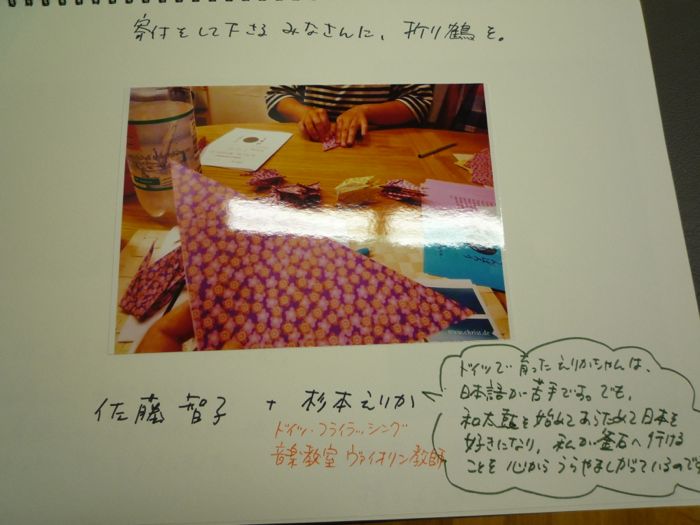 寄付をして下さる みなさんに、折り鶴を。
www.christ.de
佐藤 智子 + 杉本えりか
ドイツ・フライラッシング
音楽教室 ヴァイオリン教師
ドイツで育ったえりかちゃんは、
日本語が苦手です。でも、
和太鼓を始めてあらためて日本を
好きになり、私が釜石へ行ける
ことを心からうらやましがっているのです